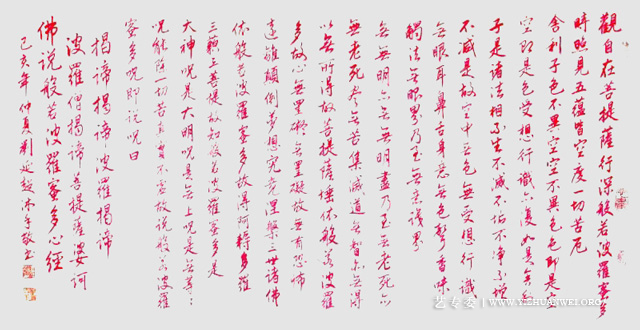 觀自在菩提薩行深般若波羅蜜多
時照見五蘊皆空度一切苦厄
舍利子色不異空空不異色色即是空
空即是色受想行識亦復如是舍利
子是諸法相不生不滅不垢不淨不增
不減是故空中無色無受想行識
無眼耳鼻舌身意無色聲香味
觸法無眼界乃至無意識界
無無明亦無無明盡乃至無老死亦
無老死盡無苦集滅道無智亦無得
以無所得故菩提薩埵依般若波羅蜜
多故心無罣礙無罣礙故無有恐怖
遠離顛倒夢想究竟涅槃三世諸佛
依般若波羅蜜多故得阿耨多羅
三藐三菩提故知般若波羅蜜多是
大神呪是大明呪是無上呪是無等等
呪能除一切苦真實不虛故説般若波羅
蜜多呪即説呪曰
揭諦揭諦波羅揭諦
波羅僧揭諦菩提薩婆訶
佛説般若波羅蜜多心經
己亥年仲夏劉延沐手敬書
艺专委 WWW.YIZHUANWEI.ORG